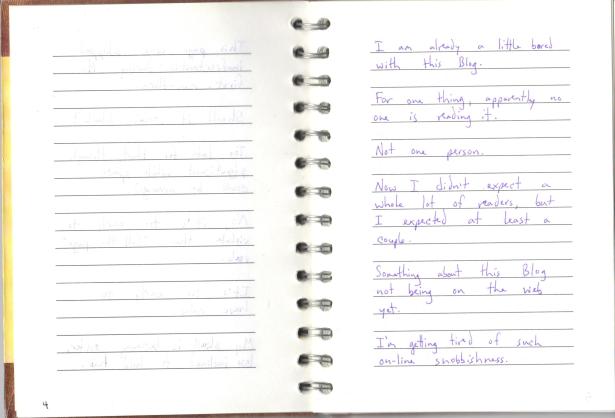 4
I am already a little bored
with this Blog.
For one thing, apparently no
one is reading it.
Not one person.
Now I didn't expect a
whole lot of readers, but
I expected at least a
couple.
Something about this Blog
not being on the web
yet.
I'm getting tired of such
on-line snobbishness.